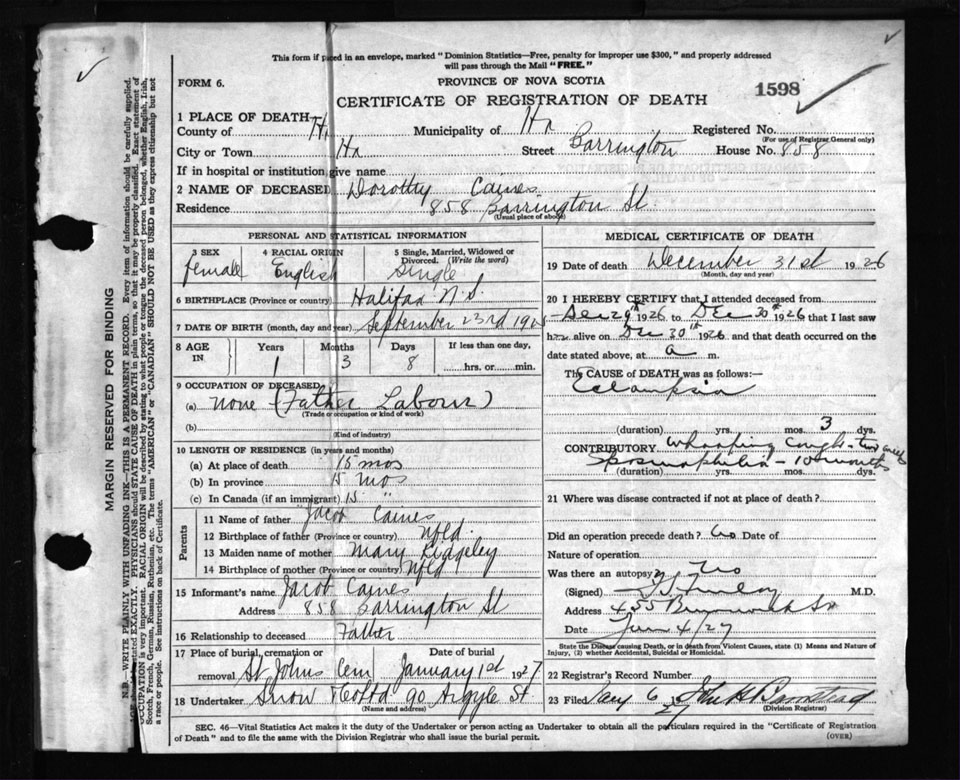 This form if placed in an envelope, marked "Dominion Statistics—Free, penalty for improper use $300," and properly addressed
will pass through the Mail "FREE."
FORM 6.
PROVINCE OF NOVA SCOTIA
1598
CERTIFICATE OF REGISTRATION OF DEATH
1 PLACE OF DEATH—
County of Hx Municipality of Hx Registered No.
(For use of Registrar General only)
City or Town Hx Street Barrington House No. 858
If in hospital or institution, give name
2 NAME OF DECEASED Dorothy Caines
Residence 858 Barrington St.
(Usual place of abode)
PERSONAL AND STATISTICAL INFORMATION
3 SEX 4 RACIAL ORIGIN 5 Single, Married, Widowed or Divorced. (Write the word)
female English Single
6 BIRTHPLACE (Province or country) Halifax N.S.
7 DATE OF BIRTH (month, day and year) September 23rd 1925
8 AGE IN Years Months Days If less than one day,
1 3 8 hrs. or min.
9 OCCUPATION OF DECEASED
(a) none (Father Labour)
(Trade or occupation or kind of work)
(b)
(Kind of industry)
10 LENGTH OF RESIDENCE (in years and months)
(a) At place of death 15 mos
(b) In province 15 mos
(c) In Canada (if an immigrant) 15 "
Parents
11 Name of father Jacob Caines
12 Birthplace of father (Province or country) Nfld.
13 Maiden name of mother Mary Ridgeley
14 Birthplace of mother (Province or country) Nfld
15 Informant's name Jacob Caines
Address 858 Barrington St
16 Relationship to deceased Father
17 Place of burial, cremation or removal Date of burial
St. Johns Cem January 1st 1927
18 Undertaker Snow & Co Ltd 90 Argyle St.
MEDICAL CERTIFICATE OF DEATH
19 Date of death December 31st 1926
(Month, day and year)
20 I HEREBY CERTIFY that I attended deceased from
Dec 29th 1926 to Dec 30th 1926 that I last saw
her alive on Dec 30th 1926 and that death occurred on the
date stated above, at a m.
The CAUSE OF DEATH was as follows:—
Eclampsia
(duration) yrs. mos. 3 dys.
CONTRIBUTORY Whooping Cough - two weeks
Spasmophilia - 10 months
(duration) yrs. mos. dys.
21 Where was disease contracted if not at place of death?
Did an operation precede death? No Date of
Nature of operation
Was there an autopsy? No
(Signed) M.D.
Address 455 Brunswick St
Date Jan 4/27
State the Disease causing Death, or in death from Violent Causes, state (1) Means and Nature of
Injury, (2) whether Accidental, Suicidal or Homicidal.
22 Registrar's Record Number
23 Filed Jany 6 27 John H Barnstead
(Division Registrar)
SEC. 46—Vital Statistics Act makes it the duty of the Undertaker or person acting as Undertaker to obtain all the particulars required in the "Certificate of Registration
of Death" and to file the same with the Division Registrar who shall issue the burial permit.
(OVER)
MARGIN RESERVED FOR BINDING
N.B.—WRITE PLAINLY WITH UNFADING INK—THIS IS A PERMANENT RECORD. Every item of information should be carefully supplied.
AGE should be stated EXACTLY. PHYSICIANS should STATE CAUSE OF DEATH in plain terms, so that it may be properly classified. Exact statement of
OCCUPATION is very important. RACIAL ORIGIN will be described by stating to what people or tongue the deceased person belonged, whether English, Irish,
Scotch, French, German, Russian, Ruthenian, etc. The terms "AMERICAN" or "CANADIAN" SHOULD NOT BE USED as they express citizenship but not
a race or people. See instructions on back of Certificate.